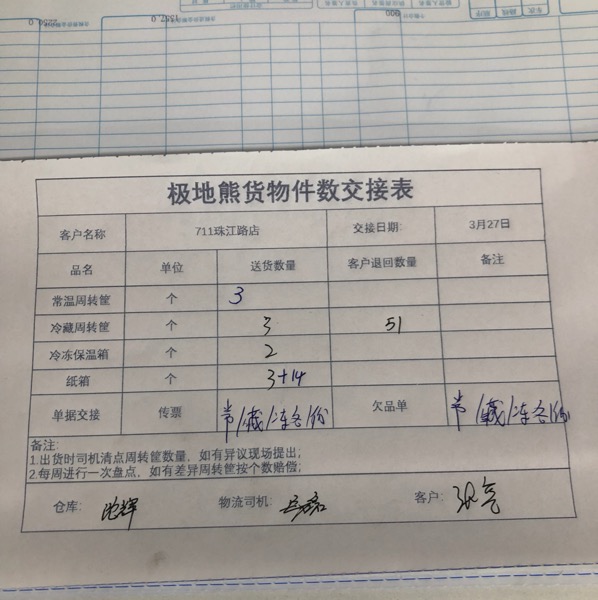 极地熊货物件数交接表
客户名称 711珠江路店 交接日期: 3月27日
品名 单位 送货数量 客户退回数量 备注
常温周转筐 个 3
冷藏周转筐 个 3 51
冷冻保温箱 个 2
纸箱 个 3+14
单据交接 传票 常/藏/冻各1份 欠品单 常/藏/冻各1份
备注:
1.出货时司机清点周转筐数量，如有异议现场提出;
2.每周进行一次盘点，如有差异周转筐按个数赔偿;
仓库: 物流司机: 客户: